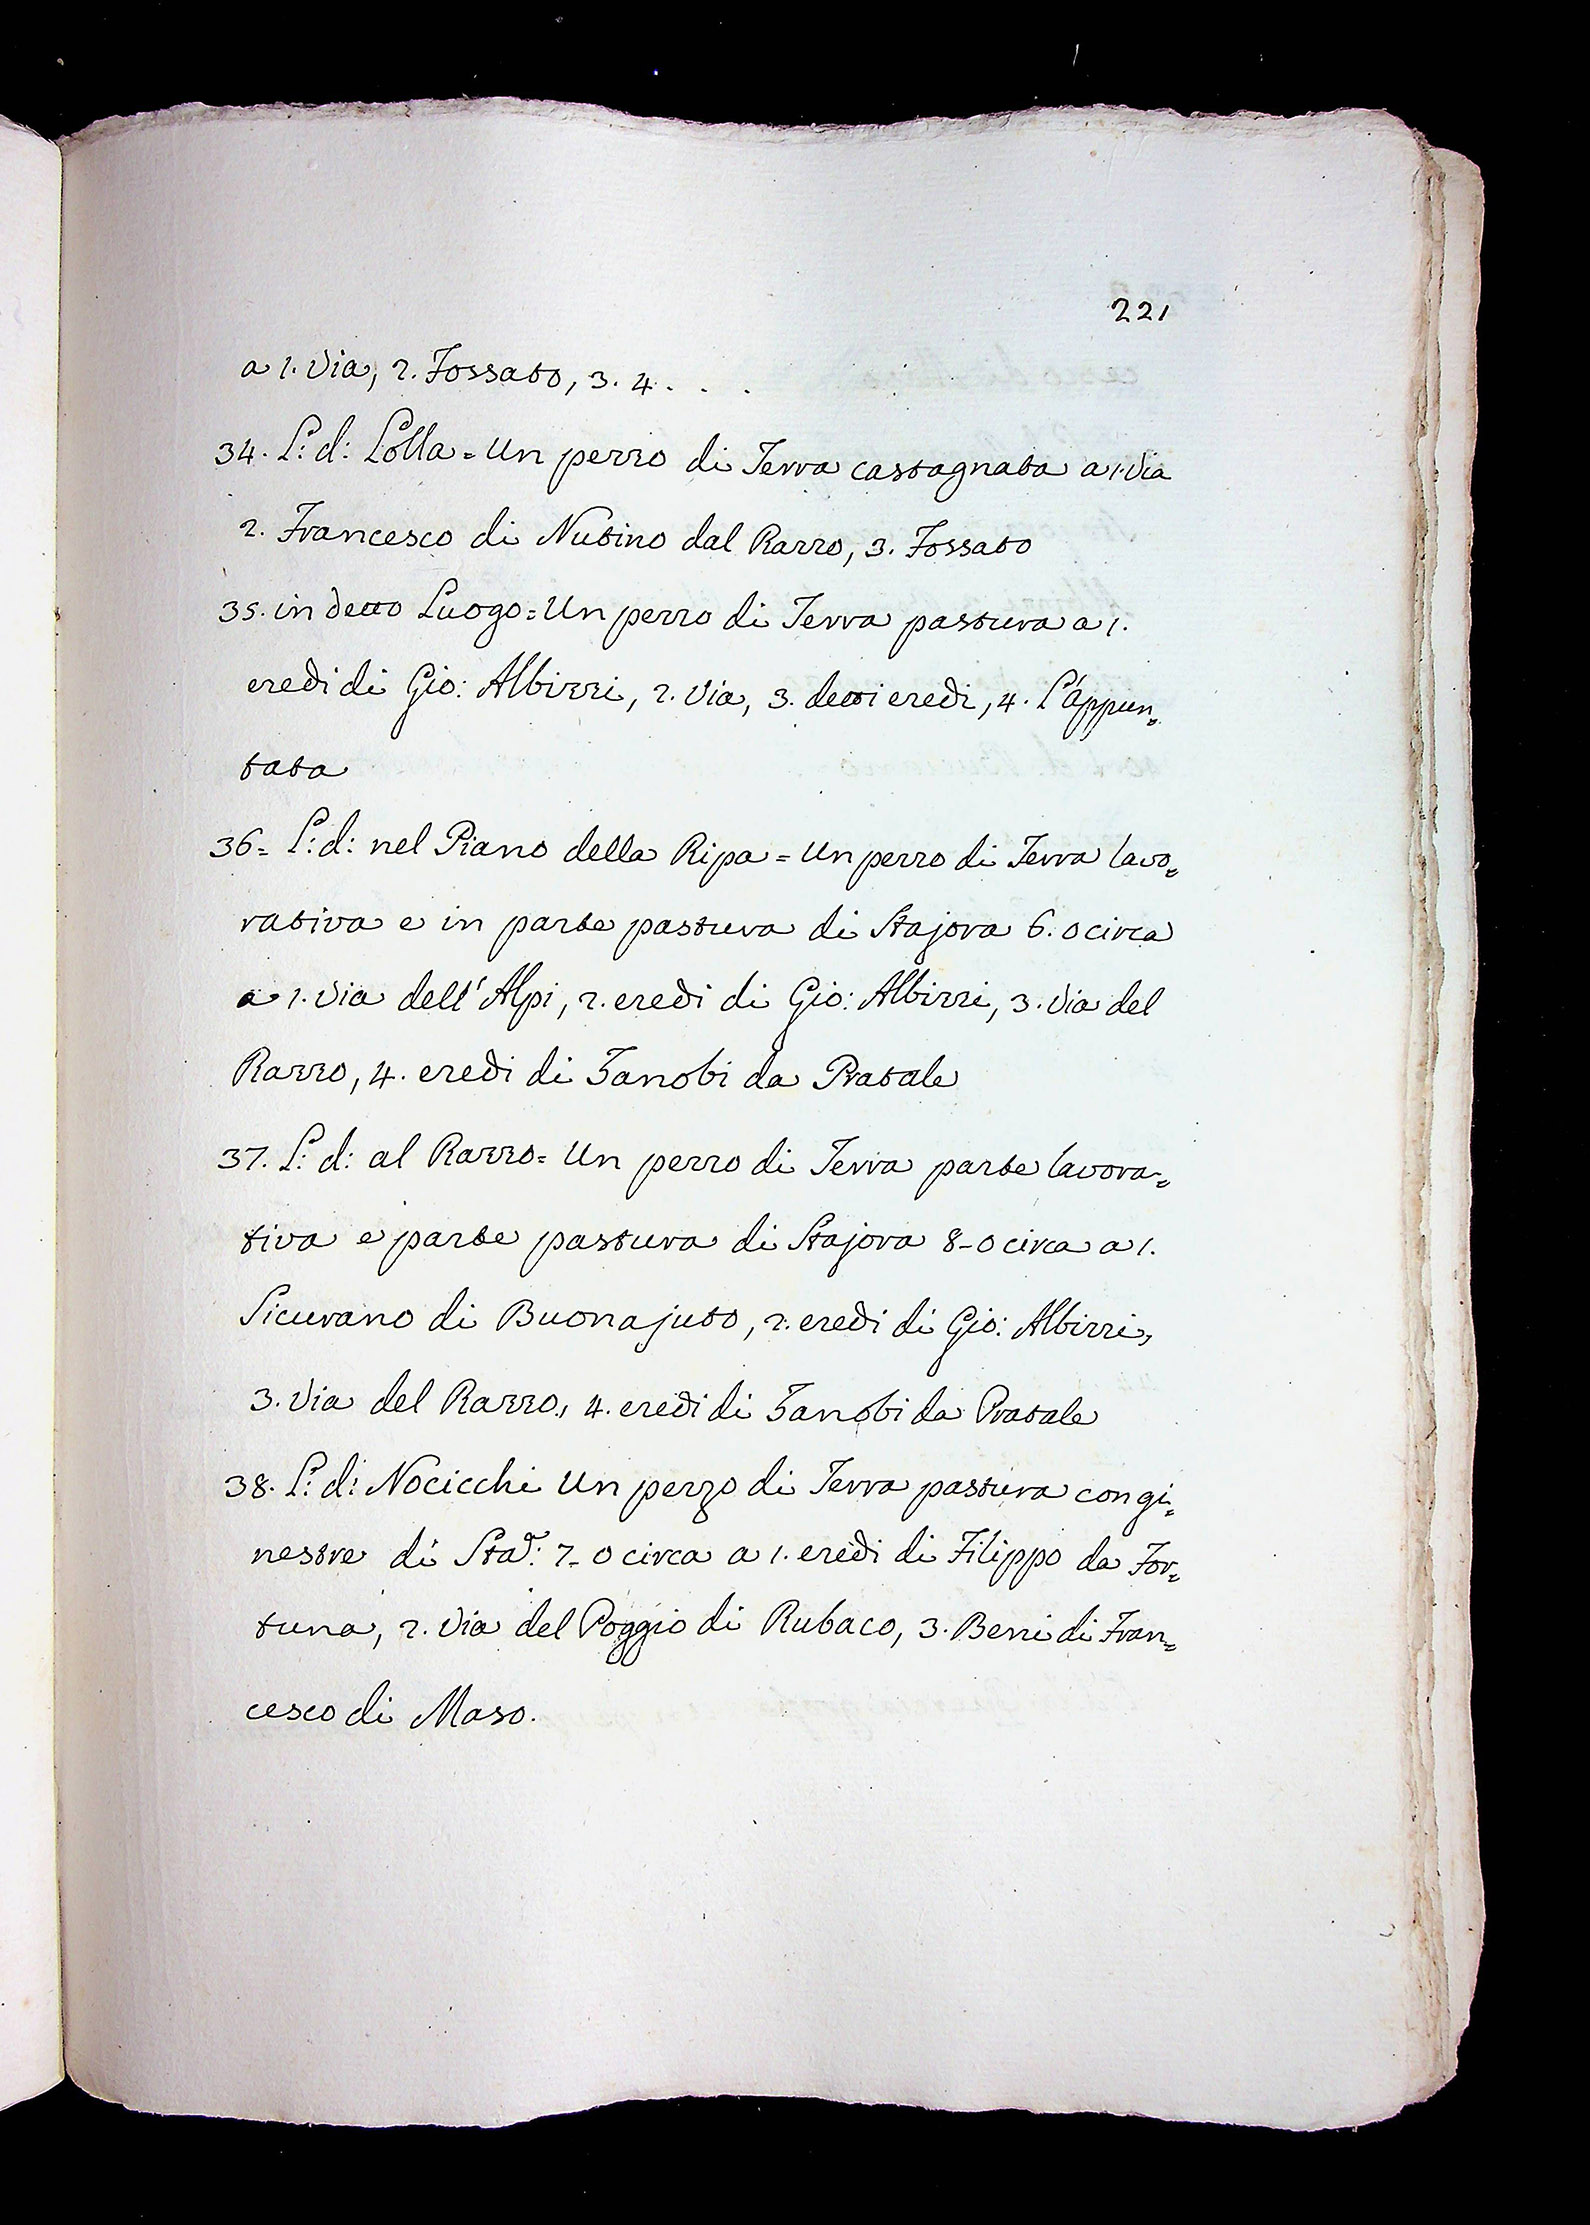 221
a 1. Via, 2. Fossato, 3. 4. . .
34. L: d: Lolla = Un pezzo di Terra castagnata a 1. Via
2. Francesco di Nutino dal Razzo, 3. Fossato
35. in detto Luogo = Un pezzo di Terra pastura a 1.
eredi di Gio: Albizzi, 2. Via, 3. detti eredi, 4. L'appun=
tata
36= L: d: nel Piano della Ripa = Un pezzo di Terra lavo=
rativa e in parte pastura di Stajora 6. 0 circa
a 1. Via dell' Alpi, 2. eredi di Gio: Albizzi, 3. Via del
Razzo, 4. eredi di Zanobi da Pratale
37. L: d: al Razzo = Un pezzo di Terra parte lavora=
tiva e parte pastura di Stajora 8-0 circa a 1.
Sicurano di Buonajuto, 2. eredi di Gio: Albizzi,
3. Via del Razzo, 4. eredi di Zanobi da Pratale
38. L: d: Nocicchi Un pezzo di Terra pastura con gi=
nestre di Sta: 7-0 circa a 1. eredi di Filippo da For=
tuna, 2. Via del Poggio di Rubaco, 3. Beni di Fran=
cesco di Maso.